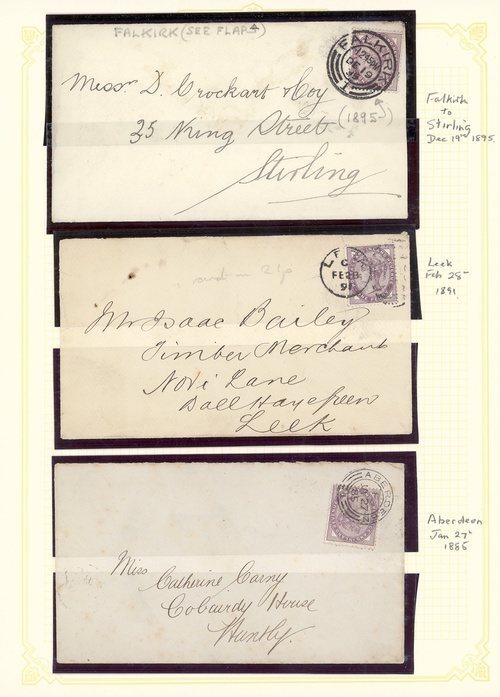 FALKIRK (SEE FLAPS)
FALKIRK
DE 19
95
1
Messrs D. Crockart & Coy
(1895)
35 King Street
Stirling
Falkirk
to
Stirling
Dec 19th 1895.
LEEK
C
FE 28
91
Mr Isaac Bailey
Timber Merchant
Novi Lane
Ball Haye Green
Leek
Leek
Feb 28th
1891
ABERDEEN
JA 27
85
Miss
Catherine Carny
Cobairdy House
Huntly.
Aberdeen
Jan 27th
1885